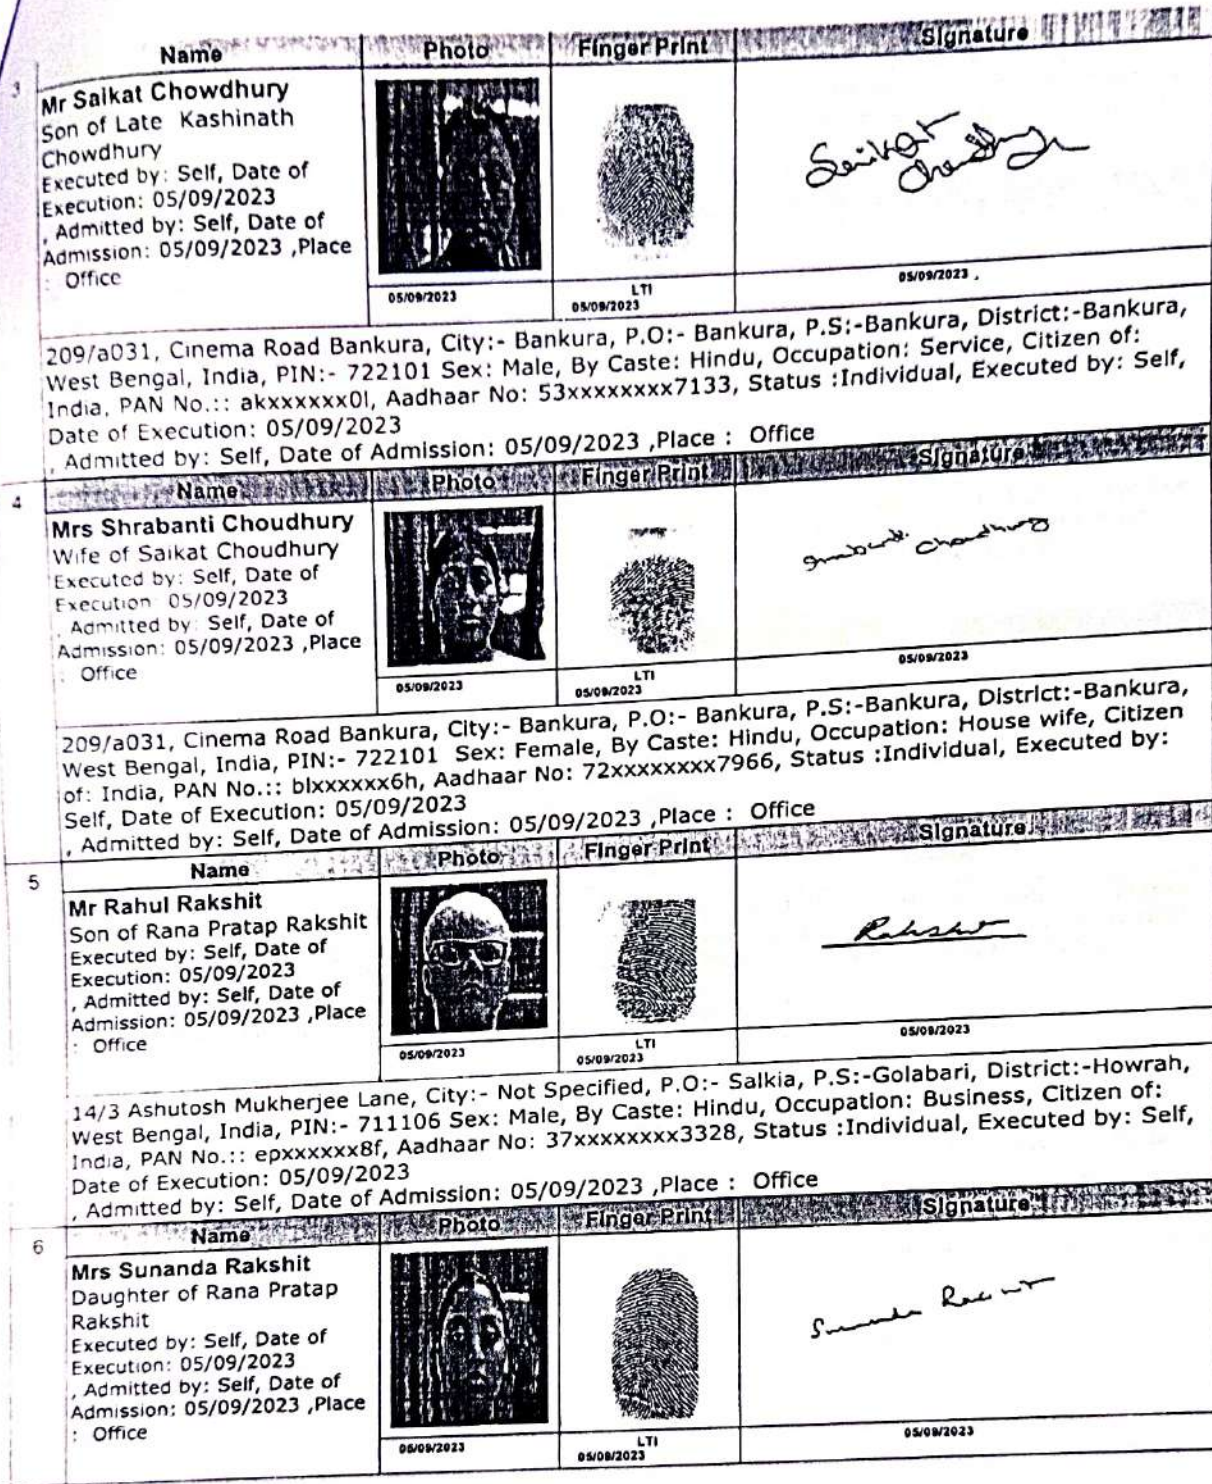 Name Photo Finger Print Signature
3
Mr Saikat Chowdhury
Son of Late Kashinath
Chowdhury
Executed by: Self, Date of
Execution: 05/09/2023
, Admitted by: Self, Date of
Admission: 05/09/2023 ,Place
: Office
Saikat
Chowdhury
05/09/2023
LTI
05/09/2023
05/09/2023
209/a031, Cinema Road Bankura, City:- Bankura, P.O:- Bankura, P.S:-Bankura, District:-Bankura,
West Bengal, India, PIN:- 722101 Sex: Male, By Caste: Hindu, Occupation: Service, Citizen of:
India, PAN No.:: akxxxxxx0l, Aadhaar No: 53xxxxxxxx7133, Status :Individual, Executed by: Self,
Date of Execution: 05/09/2023
, Admitted by: Self, Date of Admission: 05/09/2023 ,Place : Office
Name Photo Finger Print Signature
4
Mrs Shrabanti Choudhury
Wife of Saikat Choudhury
Executed by: Self, Date of
Execution: 05/09/2023
, Admitted by: Self, Date of
Admission: 05/09/2023 ,Place
: Office
Choudhury
05/09/2023
LTI
05/09/2023
05/09/2023
209/a031, Cinema Road Bankura, City:- Bankura, P.O:- Bankura, P.S:-Bankura, District:-Bankura,
West Bengal, India, PIN:- 722101 Sex: Female, By Caste: Hindu, Occupation: House wife, Citizen
of: India, PAN No.:: blxxxxxx6h, Aadhaar No: 72xxxxxxxx7966, Status :Individual, Executed by:
Self, Date of Execution: 05/09/2023
, Admitted by: Self, Date of Admission: 05/09/2023 ,Place : Office
Name Photo Finger Print Signature
5
Mr Rahul Rakshit
Son of Rana Pratap Rakshit
Executed by: Self, Date of
Execution: 05/09/2023
, Admitted by: Self, Date of
Admission: 05/09/2023 ,Place
: Office
Rakshit
05/09/2023
LTI
05/09/2023
05/09/2023
14/3 Ashutosh Mukherjee Lane, City:- Not Specified, P.O:- Salkia, P.S:-Golabari, District:-Howrah,
West Bengal, India, PIN:- 711106 Sex: Male, By Caste: Hindu, Occupation: Business, Citizen of:
India, PAN No.:: epxxxxxx8f, Aadhaar No: 37xxxxxxxx3328, Status :Individual, Executed by: Self,
Date of Execution: 05/09/2023
, Admitted by: Self, Date of Admission: 05/09/2023 ,Place : Office
Name Photo Finger Print Signature
6
Mrs Sunanda Rakshit
Daughter of Rana Pratap
Rakshit
Executed by: Self, Date of
Execution: 05/09/2023
, Admitted by: Self, Date of
Admission: 05/09/2023 ,Place
: Office
Sunanda Rakshit
05/09/2023
LTI
05/09/2023
05/09/2023